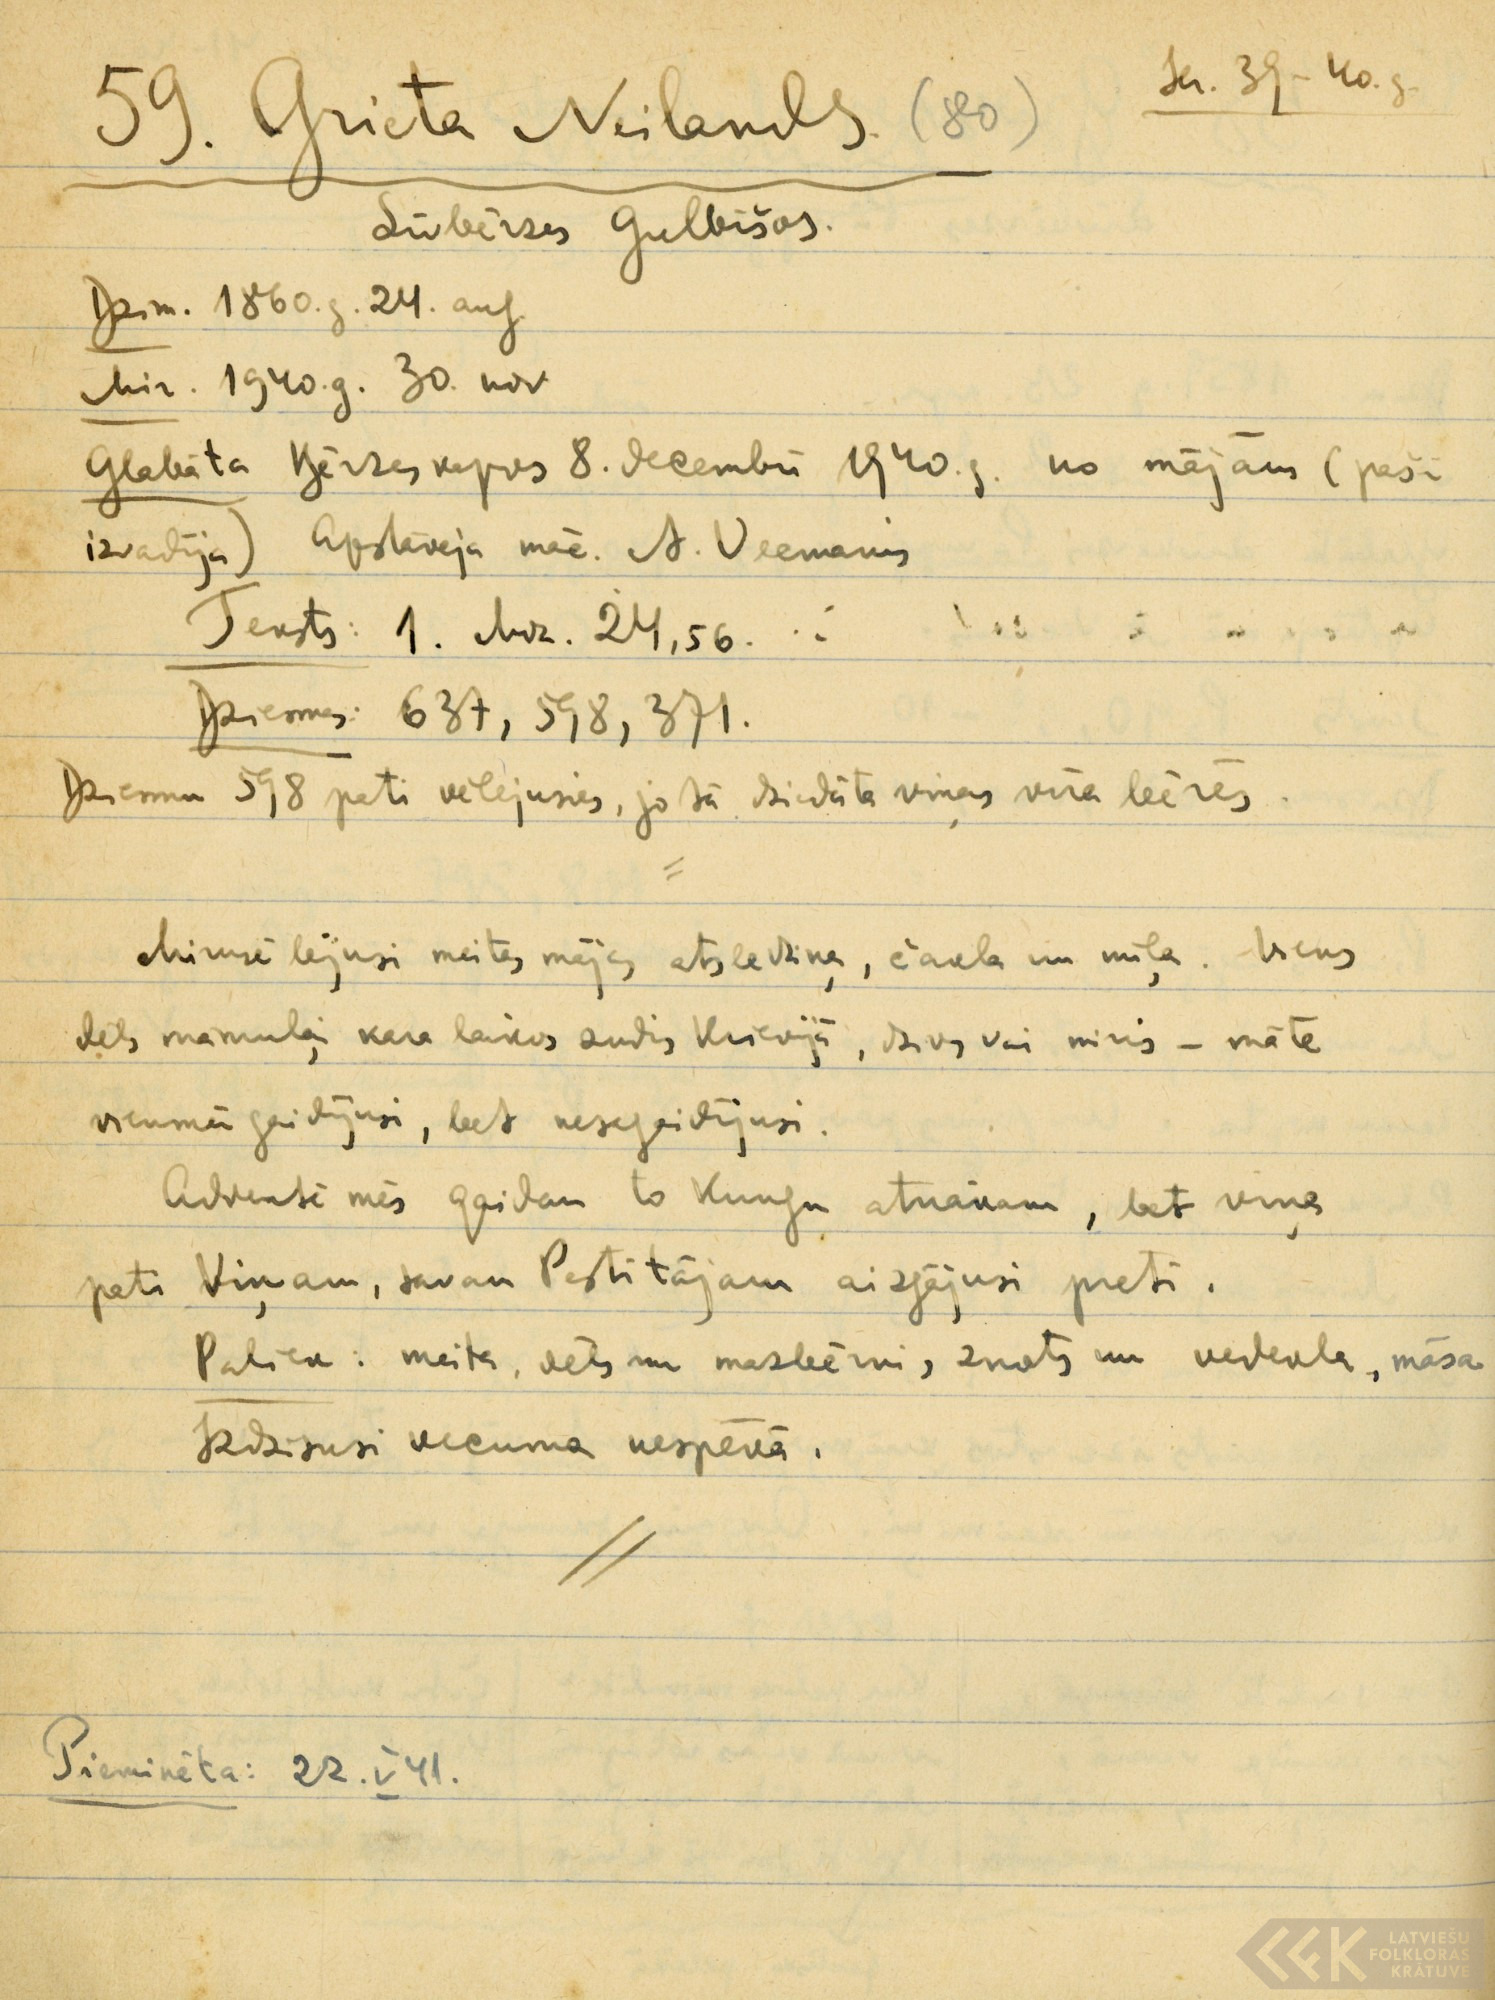 59. Grieta Neilands. (80)
Skr. 39-40.g.
Līvbērzes Gulbišos.
Dzim. 1860.g. 24. aug.
Mir. 1940.g. 30. nov
Glabāta Bērzes kapos 8. decembrī 1940.g. no mājām (paši
izvadīja) Apstāvēja māc. A. Veemanis
Teksts: 1. Moz. 24,56.
Dziesmas: 637, 598, 371.
Dziesmu 598 pati vēlējusies, jo tā dziedāta viņas vīra bērēs.
=
Mirusē bijusi meitas mājas atslēdziņa, čakla un mīļa. Viens
dēls māmuļai kara laikos zudis Krievijā, dzīvs vai miris – māte
vienmēr gaidījusi, bet nesagaidījusi.
Adventē mēs gaidam to Kungu atnākam, bet viņa
pati Viņam, savam Pestītājam aizgājusi pretī.
Paliek: meita, dēls un mazbērni, znots un vedekla, māsa
Izdzisusi vecuma nespēkā.
//
Pieminēta: 22.V 41.
LATVIEŠU
FOLKLORAS
KRĀTUVE